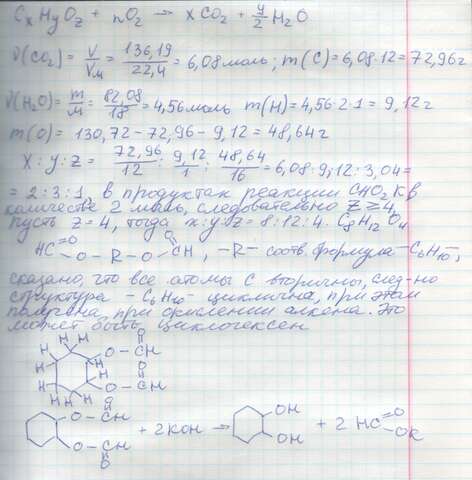 CxHyOz + nO2 → xCO2 + y/2 H2O
ν(CO2) = V/Vм = 136,19/22,4 = 6,08 моль; m(C) = 6,08·12 = 72,96г
ν(H2O) = m/м = 82,08/18 = 4,56 моль m(H) = 4,56·2·1 = 9,12г
m(O) = 130,72 - 72,96 - 9,12 = 48,64г
X:y:z = 72,96/12 : 9,12/1 : 48,64/16 = 6,08:9,12:3,04 =
= 2:3:1, в продуктах реакции CHO2K в
количестве 2 моль, следовательно z ≥ 4,
пусть z = 4, тогда x:y:z = 8:12:4. C8H12O4
HC(=O) - O - R - O - CH(=O), -R- соотв. формула -C6H10-,
сказано, что все атомы C вторичны, след-но
структура - C6H10- циклична, при этом
получена при окислении алкена. Это
может быть циклогексен
H H H O
H O - CH
H O
H O - CH
H H H
O - CH = O OH
+ 2KOH → + 2 HC(=O) - OK
O - CH = O OH